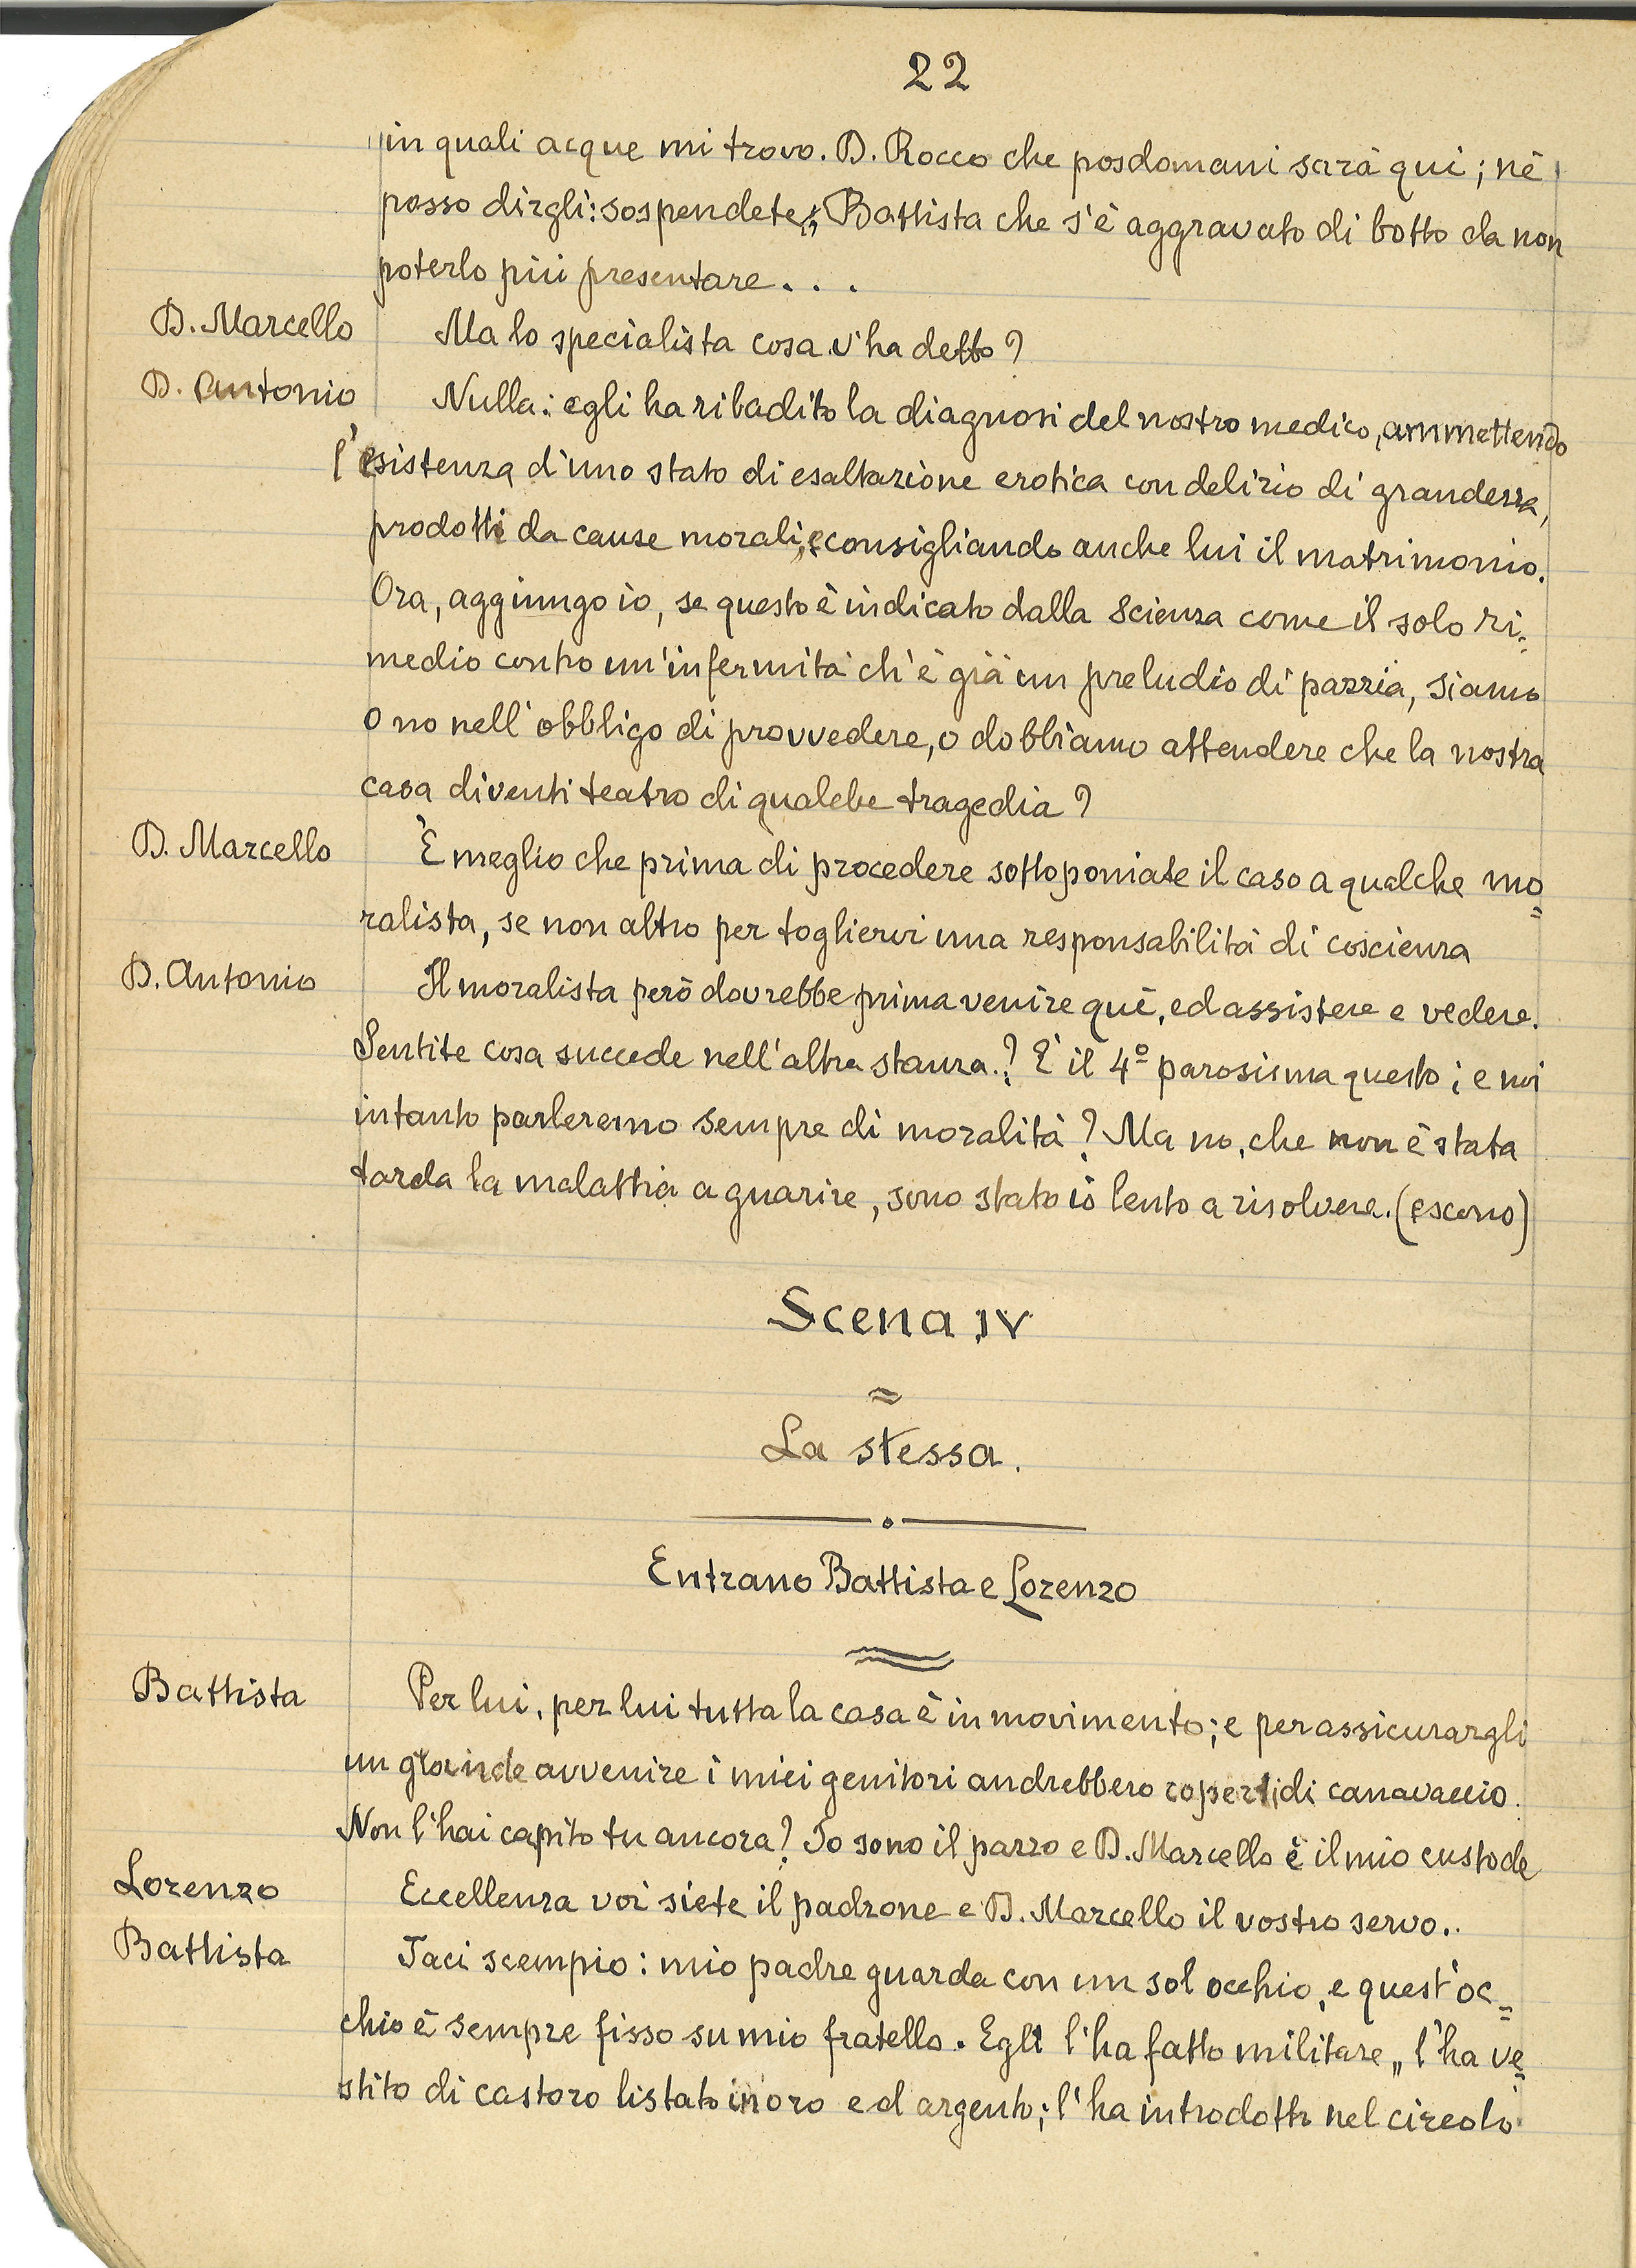 22
in quali acque mi trovo. D. Rocco che posdomani sarà qui; nè
posso dirgli: sospendete; Battista che s'è aggravato di botto da non
poterlo più presentare. . .
D. Marcello Ma lo specialista cosa v'ha detto?
D. Antonio Nulla: egli ha ribadito la diagnosi del nostro medico, ammettendo
l'esistenza d'uno stato di esaltazione erotica con delirio di grandezza,
prodotti da cause morali, e consigliando anche lui il matrimonio.
Ora, aggiungo io, se questo è indicato dalla Scienza come il solo ri=
medio contro un'infermità ch'è già un preludio di pazzia, siamo
o no nell'obbligo di provvedere, o dobbiamo attendere che la nostra
casa diventi teatro di qualche tragedia?
D. Marcello È meglio che prima di procedere sottoponiate il caso a qualche mo=
ralista, se non altro per togliervi una responsabilità di coscienza
D. Antonio Il moralista però dovrebbe prima venire quì, ed assistere e vedere.
Sentite cosa succede nell'altra stanza.? E' il 4º parosisma questo; e noi
intanto parleremo sempre di moralità? Ma no, che non è stata
tarda la malattia a guarire, sono stato io lento a risolvere. (escono)
Scena IV
La stessa.
Entrano Battista e Lorenzo
Battista Per lui, per lui tutta la casa è in movimento; e per assicurargli
un grande avvenire i miei genitori andrebbero coperti di canavaccio.
Non l'hai capito tu ancora? Io sono il pazzo e D. Marcello è il mio custode
Lorenzo Eccellenza voi siete il padrone e D. Marcello il vostro servo..
Battista Taci scempio: mio padre guarda con un sol occhio, e quest'oc=
chio è sempre fisso su mio fratello. Egli l'ha fatto militare,, l'ha ve=
stito di castoro listato in oro ed argento; l'ha introdotto nel circolo